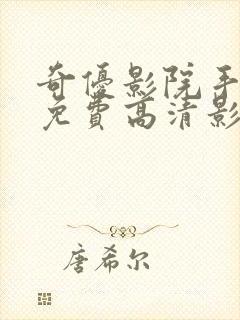 奇優影院手
免費高清影
唐希尔